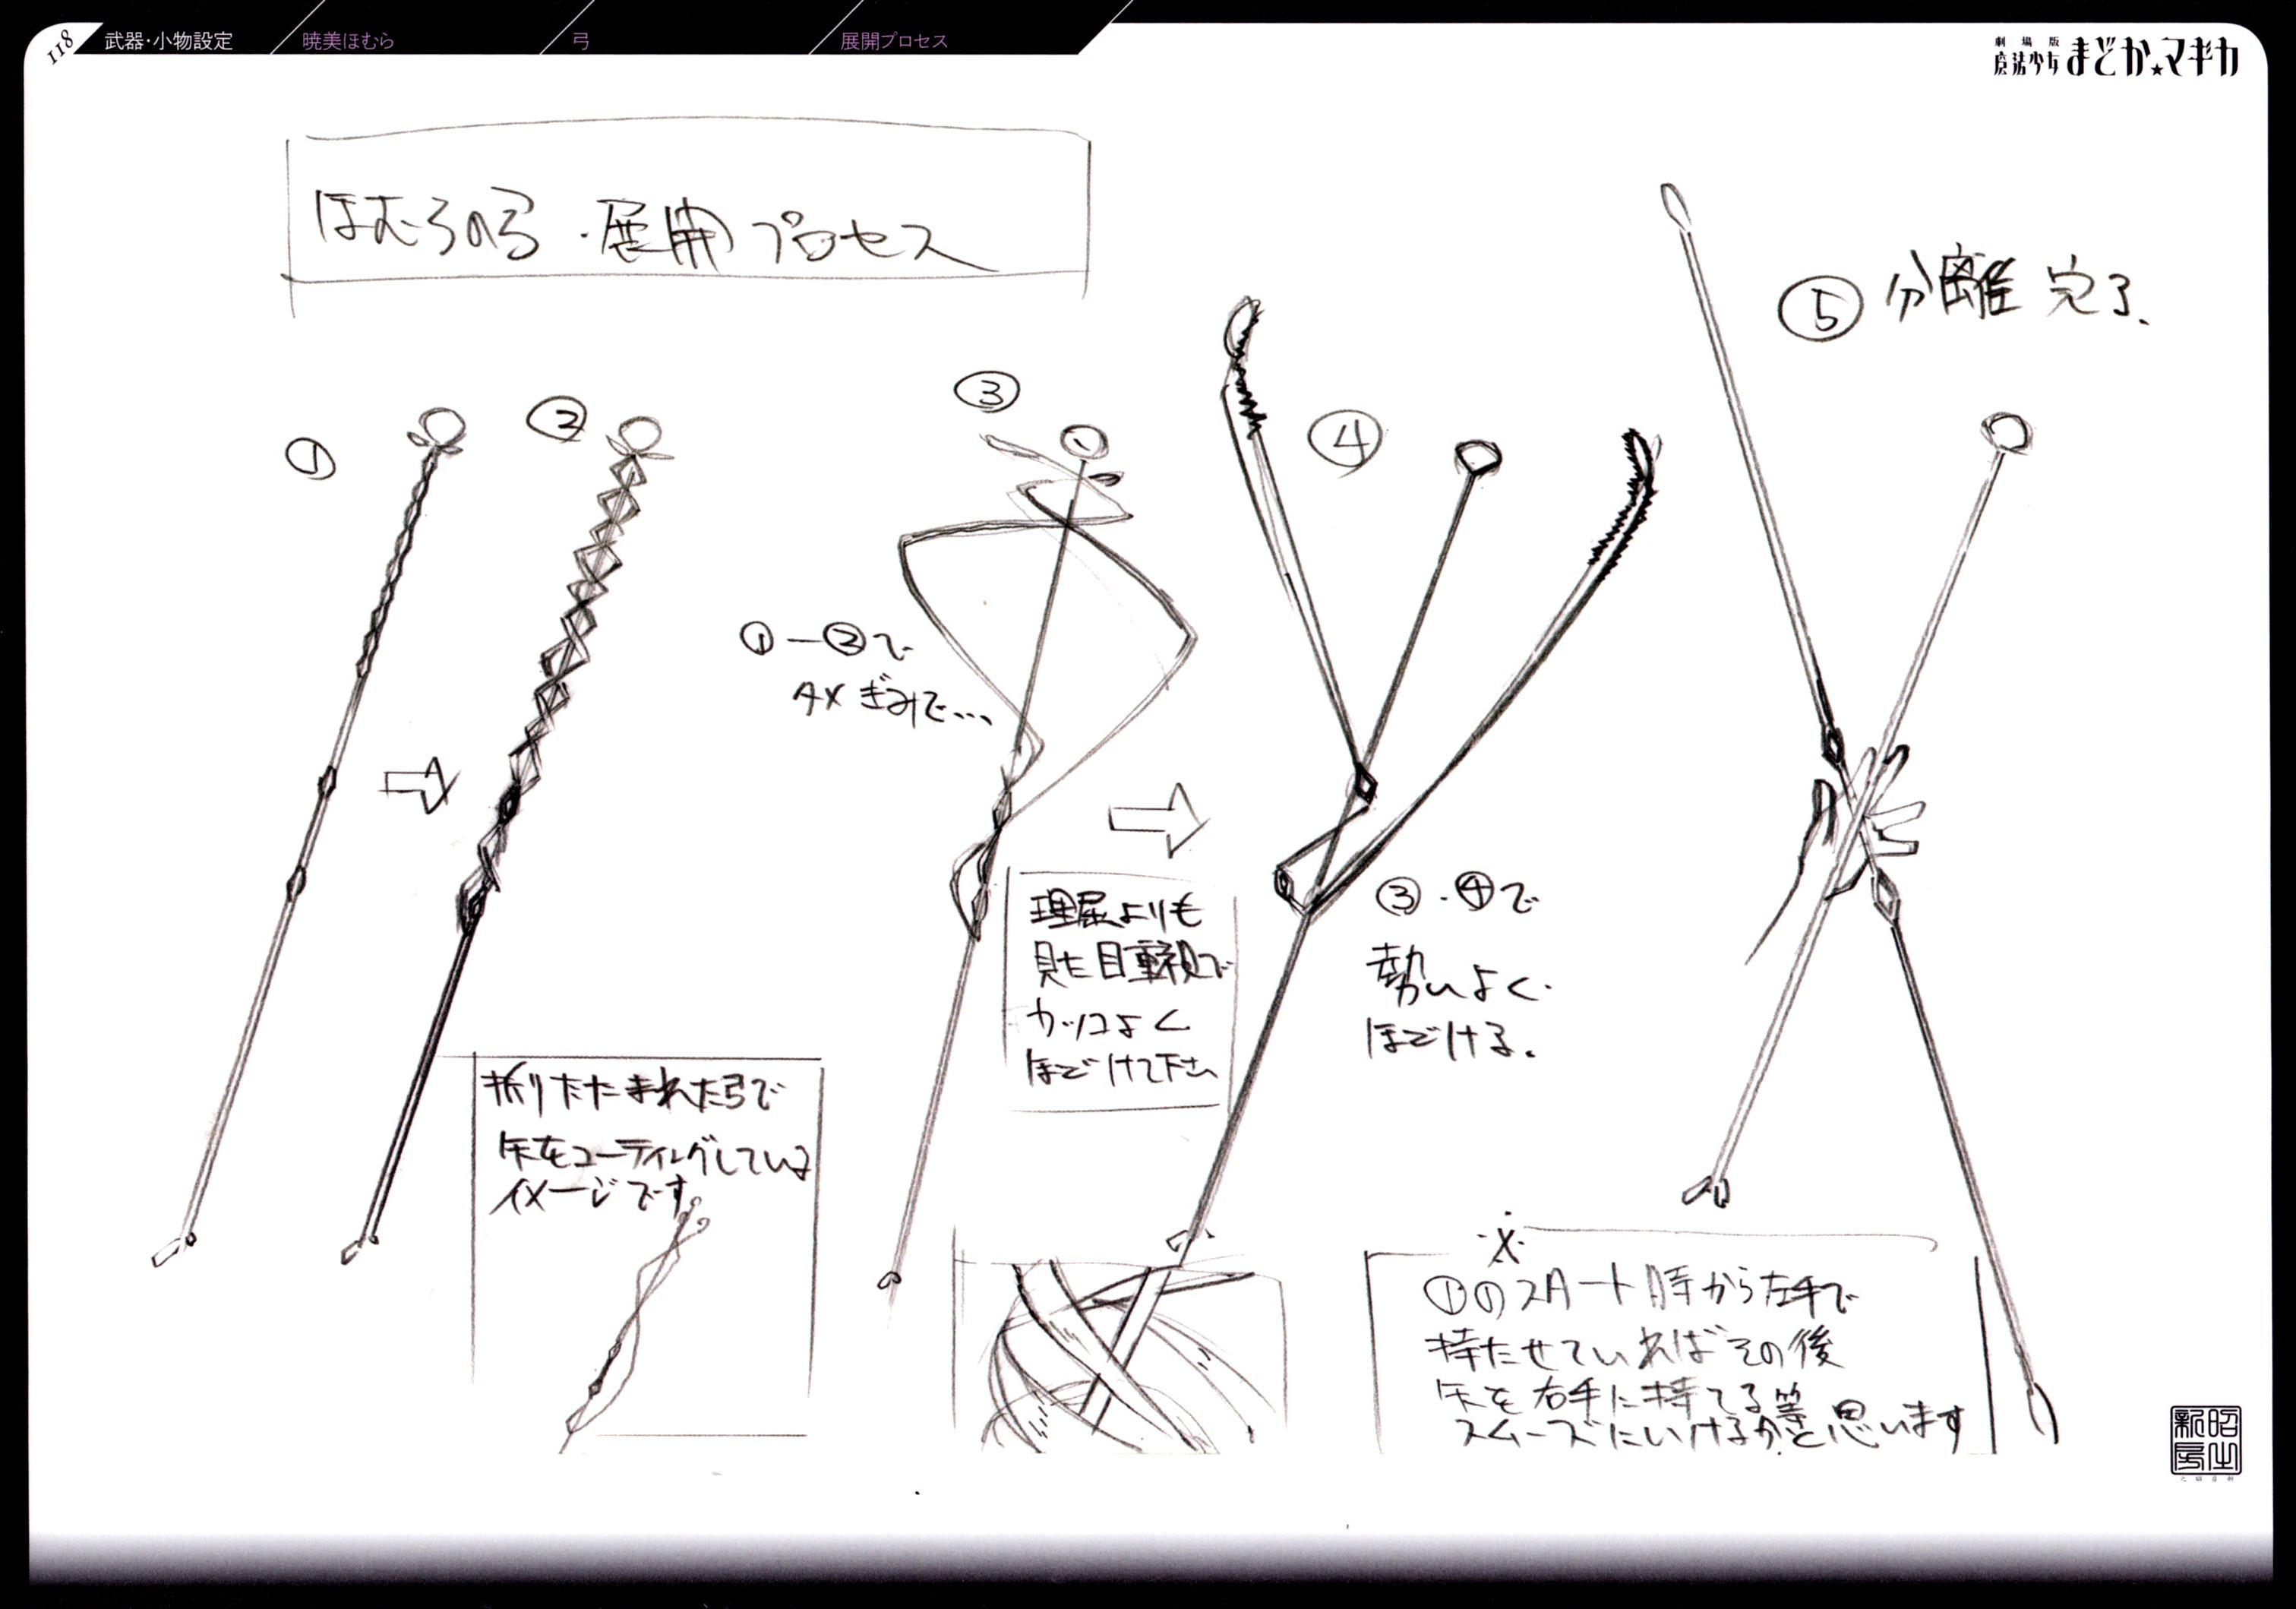 118
武器・小物設定
暁美ほむら
弓
展開プロセス
劇場版
魔法少女まどか☆マギカ
ほむらの弓・展開プロセス
①
②
③
④
⑤ 分離 完了、
①—②で
タメぎみで…
理屈よりも
見た目重視で
カッコよく
ほどけて下さい
③・④で
勢いよく
ほどける。
折りたたまれた弓で
矢をコーティングしている
イメージです
※
①のスタート時から左手で
持たせていればその後
矢を右手に持てる等
スムーズにいけるかと思います